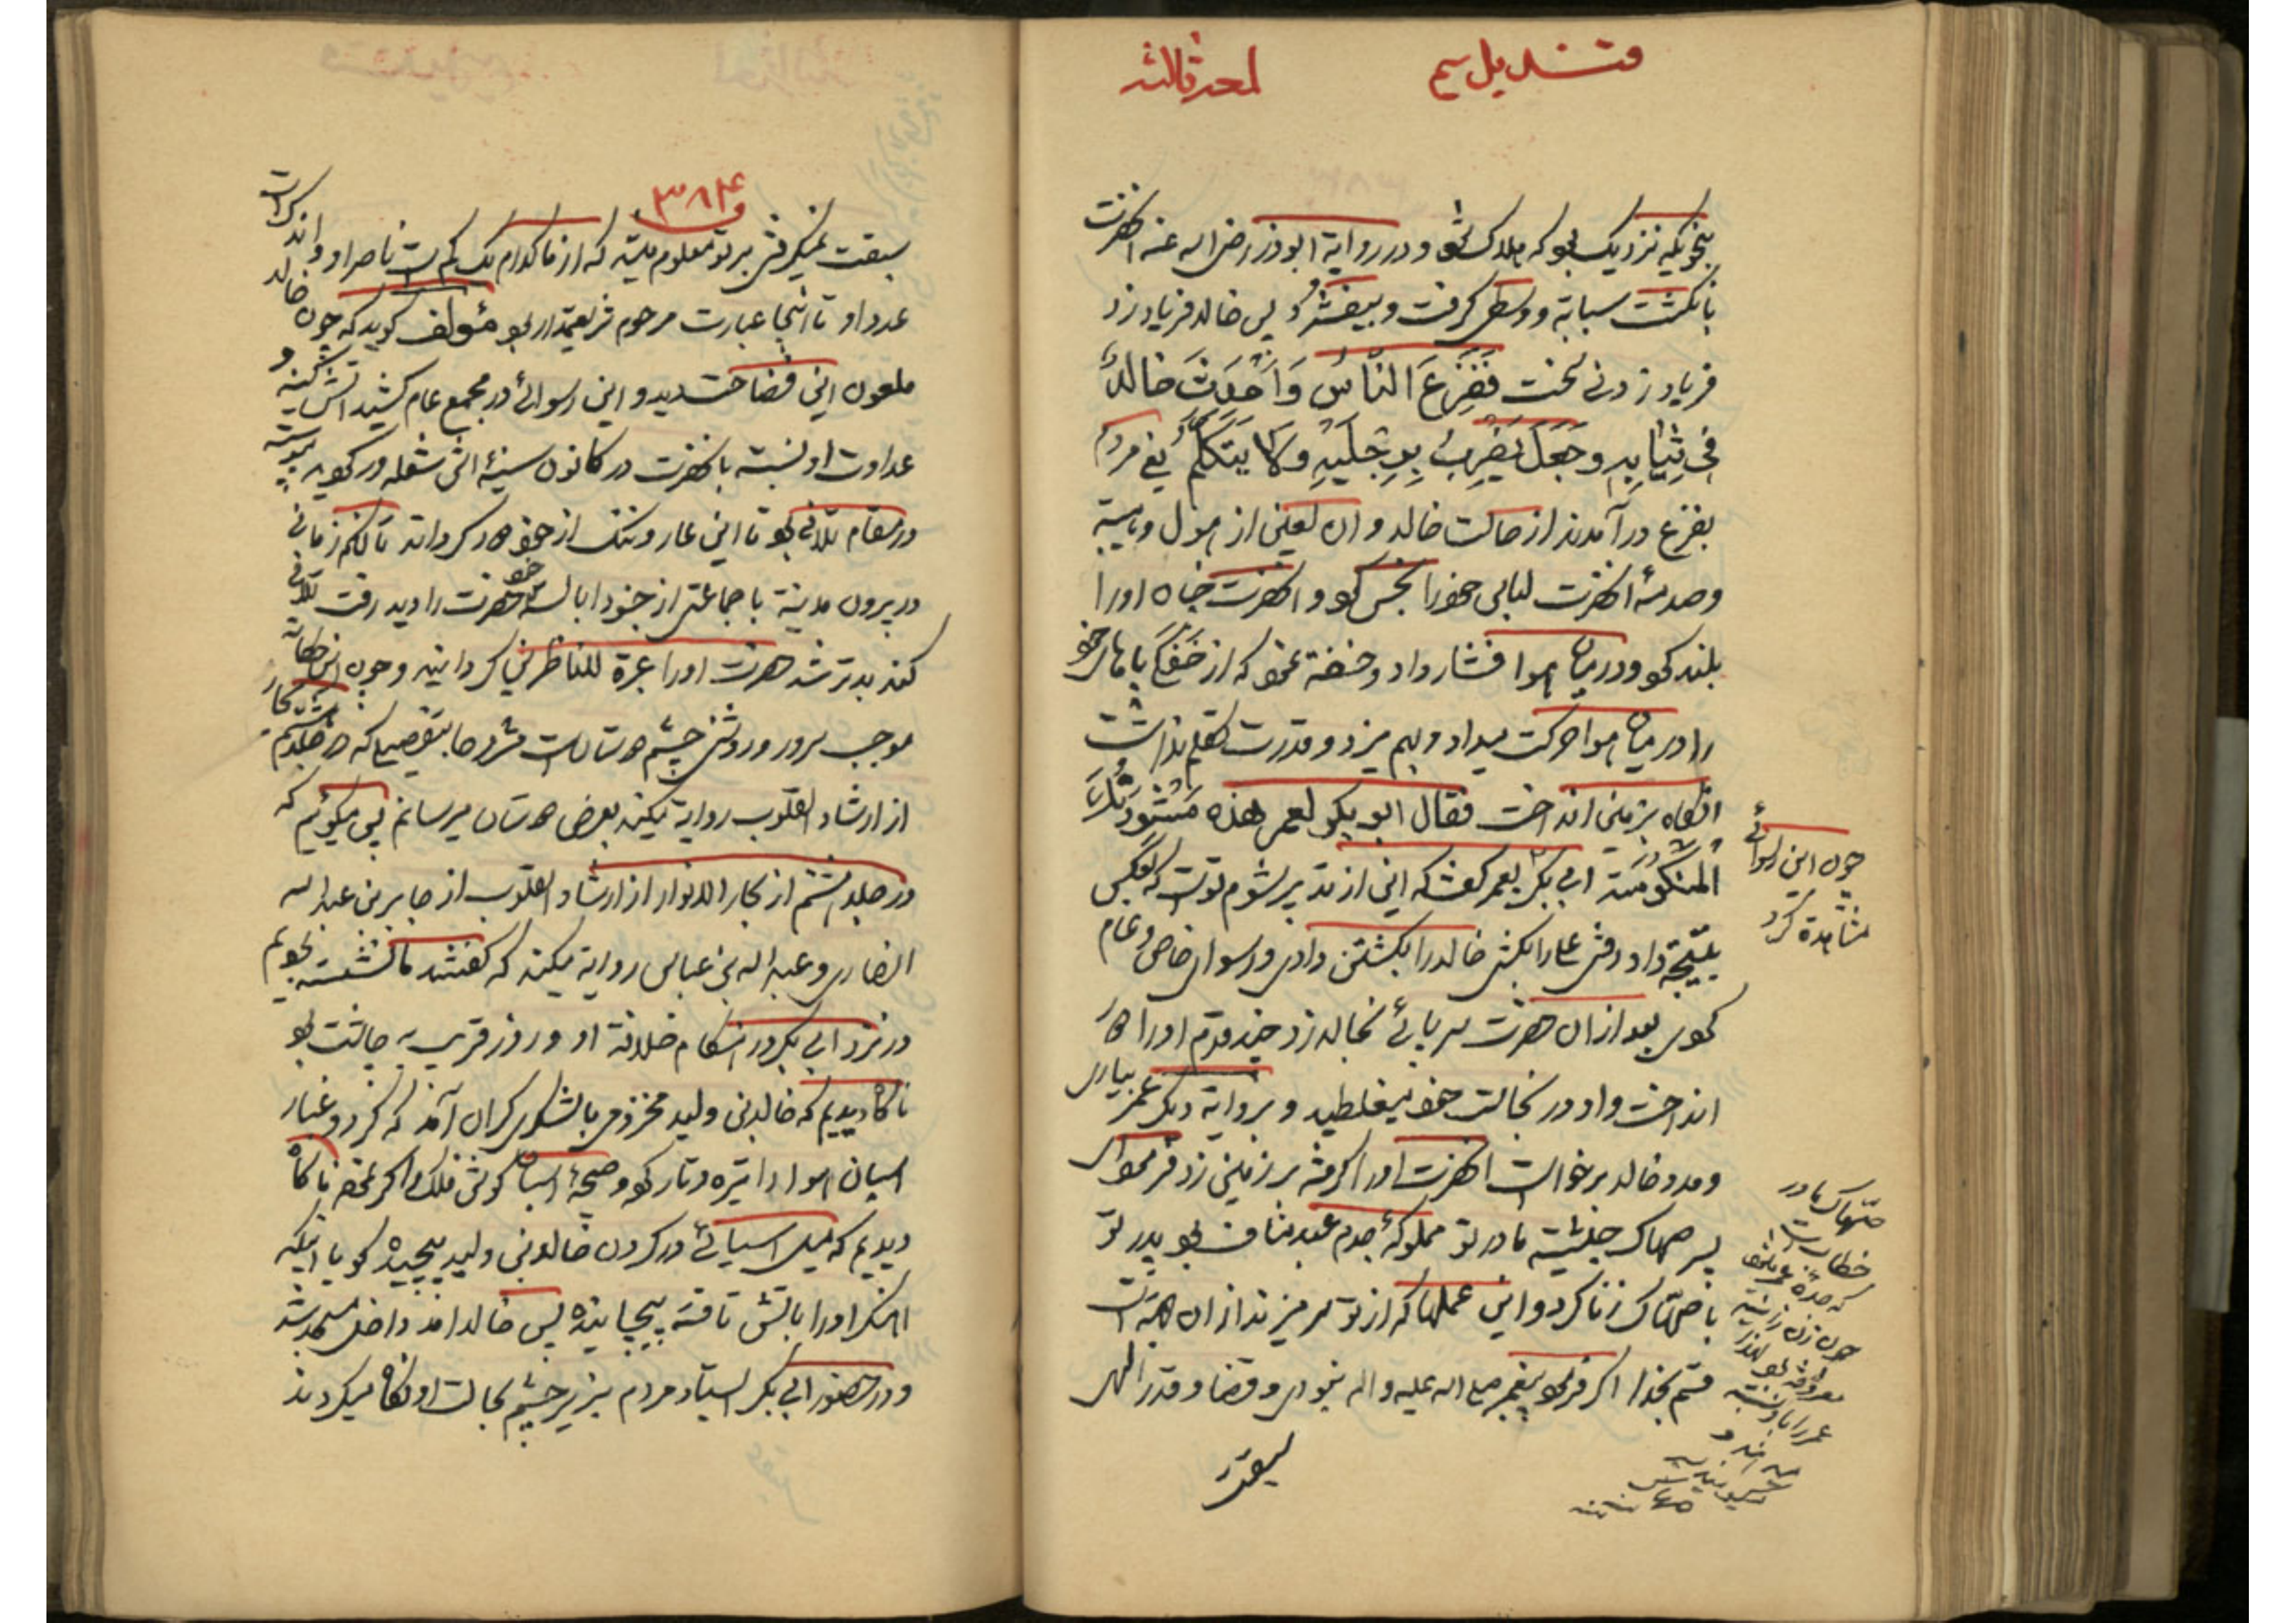 قندیل سیم
لمعه ثالثه
بنحویکه نزدیک بود که هلاک شود و در روایة ابوذر رضی اله عنه انحضرت
بانکشت سبابة و وسطی کرفت و بیفشرد پس خالد فریاد زد
فریاد زدنی سخت فَفَزِعَ النَّاسُ وَاَحْدَثَ خالدٌ
فی ثِیَابِهِ وجَعَلَ یَضْرِبُ بِرِجْلَیْهِ وَلا یَتَکَلَّمُ یعنی مردم
بفزع درآمدند از حالت خالد و ان لعین از هول و هیبة
وصدمهٔ انحضرت لباس خود را نجس کرد و انحضرت چناه اورا
بلند کرد و در میان هوا فشار داد که از خفکی پاهای خود
را در میان هوا حرکت میداد و بهم میزد و قدرت تکلم نداشت
انکاه بزمین انداخت فقال ابو بکر لعمر هذه مَشْوَرَتُکَ
المنکوسَة ابی بکر بعمر کفت که این از تدبیر شوم توست که بعکس
نتیجة داد رفتی علی را بکشی خالد را بکشتن دادی و رسوای خاص و عام
کردی بعد از ان حضرت سر پائی بخالد زد چند قدم اورا دور
انداخت و او در نجاست خود میغلطید و بروایة دیکر عمر بیاری
و مدد خالد برخواست انحضرت اورا کرفته بر زمین زد فرمود ای
پسر صهاک حبشیة مادر تو مملوکهٔ جدم عبد مناف بود پدر تو
با صهّاک زنا کرد و این عملها که از تو سر میزند از ان جهة است
قسم بخدا اکر فرموده پیغمبر صلی اله علیه و اله نبودی و قضا و قدر الهی
سبقت
چون این رسوائی
مشاهدة کرد
صهاک مادر
خطاب است
چون زن زانیة
عمر را باو نسبة
۳۸۴
سبقت نمیکرفتی بر تو معلوم میشد که از ما کدام یک کم است ناصر او و اندک است
عدد او تا اینجا عبارت مرحوم شریعتمدار بود مؤلف کوید که چون خالد
ملعون این فضاحت دید و این رسوائی در مجمع عام کشید اتش کینه و
عداوت او نسبة بانحضرت در کانون سینهٔ اش شعله ور کردید پیوسته
در مقام تلافی بود تا این عار و ننک از خود دور کرداند تا انکه زمانی
در بیرون مدینة با جماعتی از جنود ابالسهٔ خود حضرت را دید رفت تلافی
کند بدتر شد حضرت اورا عبرة للناظرین کردانید و چون این حکایة
موجب سرور و روشنی چشم دوستان است مشروحا بتفصیلی که در جلد هشتم بحار
از ارشاد القلوب روایة میکند بعرض دوستان میرسانم پس میکوئیم که
در جلد هشتم از بحار الانوار از ارشاد القلوب از جابر بن عبد اله
انصاری و عبد اله بن عباس روایة میکند که کفتند ما نشسته بودیم
در نزد ابی بکر در هنکام خلافة او و روز قریب به چاشت بود
ناکاه دیدیم که خالد بن ولید مخزومی با لشکری کران آمد که کرد و غبار
اسبان هوا را تیره و تار کرد و صیحهٔ اسبان کوش فلک را کر نمود ناکاه
دیدیم که میل اسیائی در کردن خالد بن ولید پیچیده کویا اینکه
اهنکر اورا باتش تافته پیچانیده پس خالد امد داخل مسجد شد
و در حضور ابی بکر ایستاد مردم بزیر چشم بجانب او نکاه میکردند